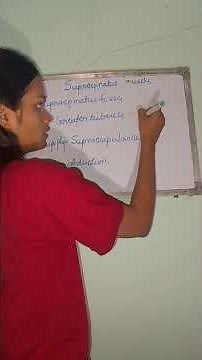 Supraspinatus muscle
Supraspinatus fossa
Greater tubercle
Supply- Suprascapular
abduction